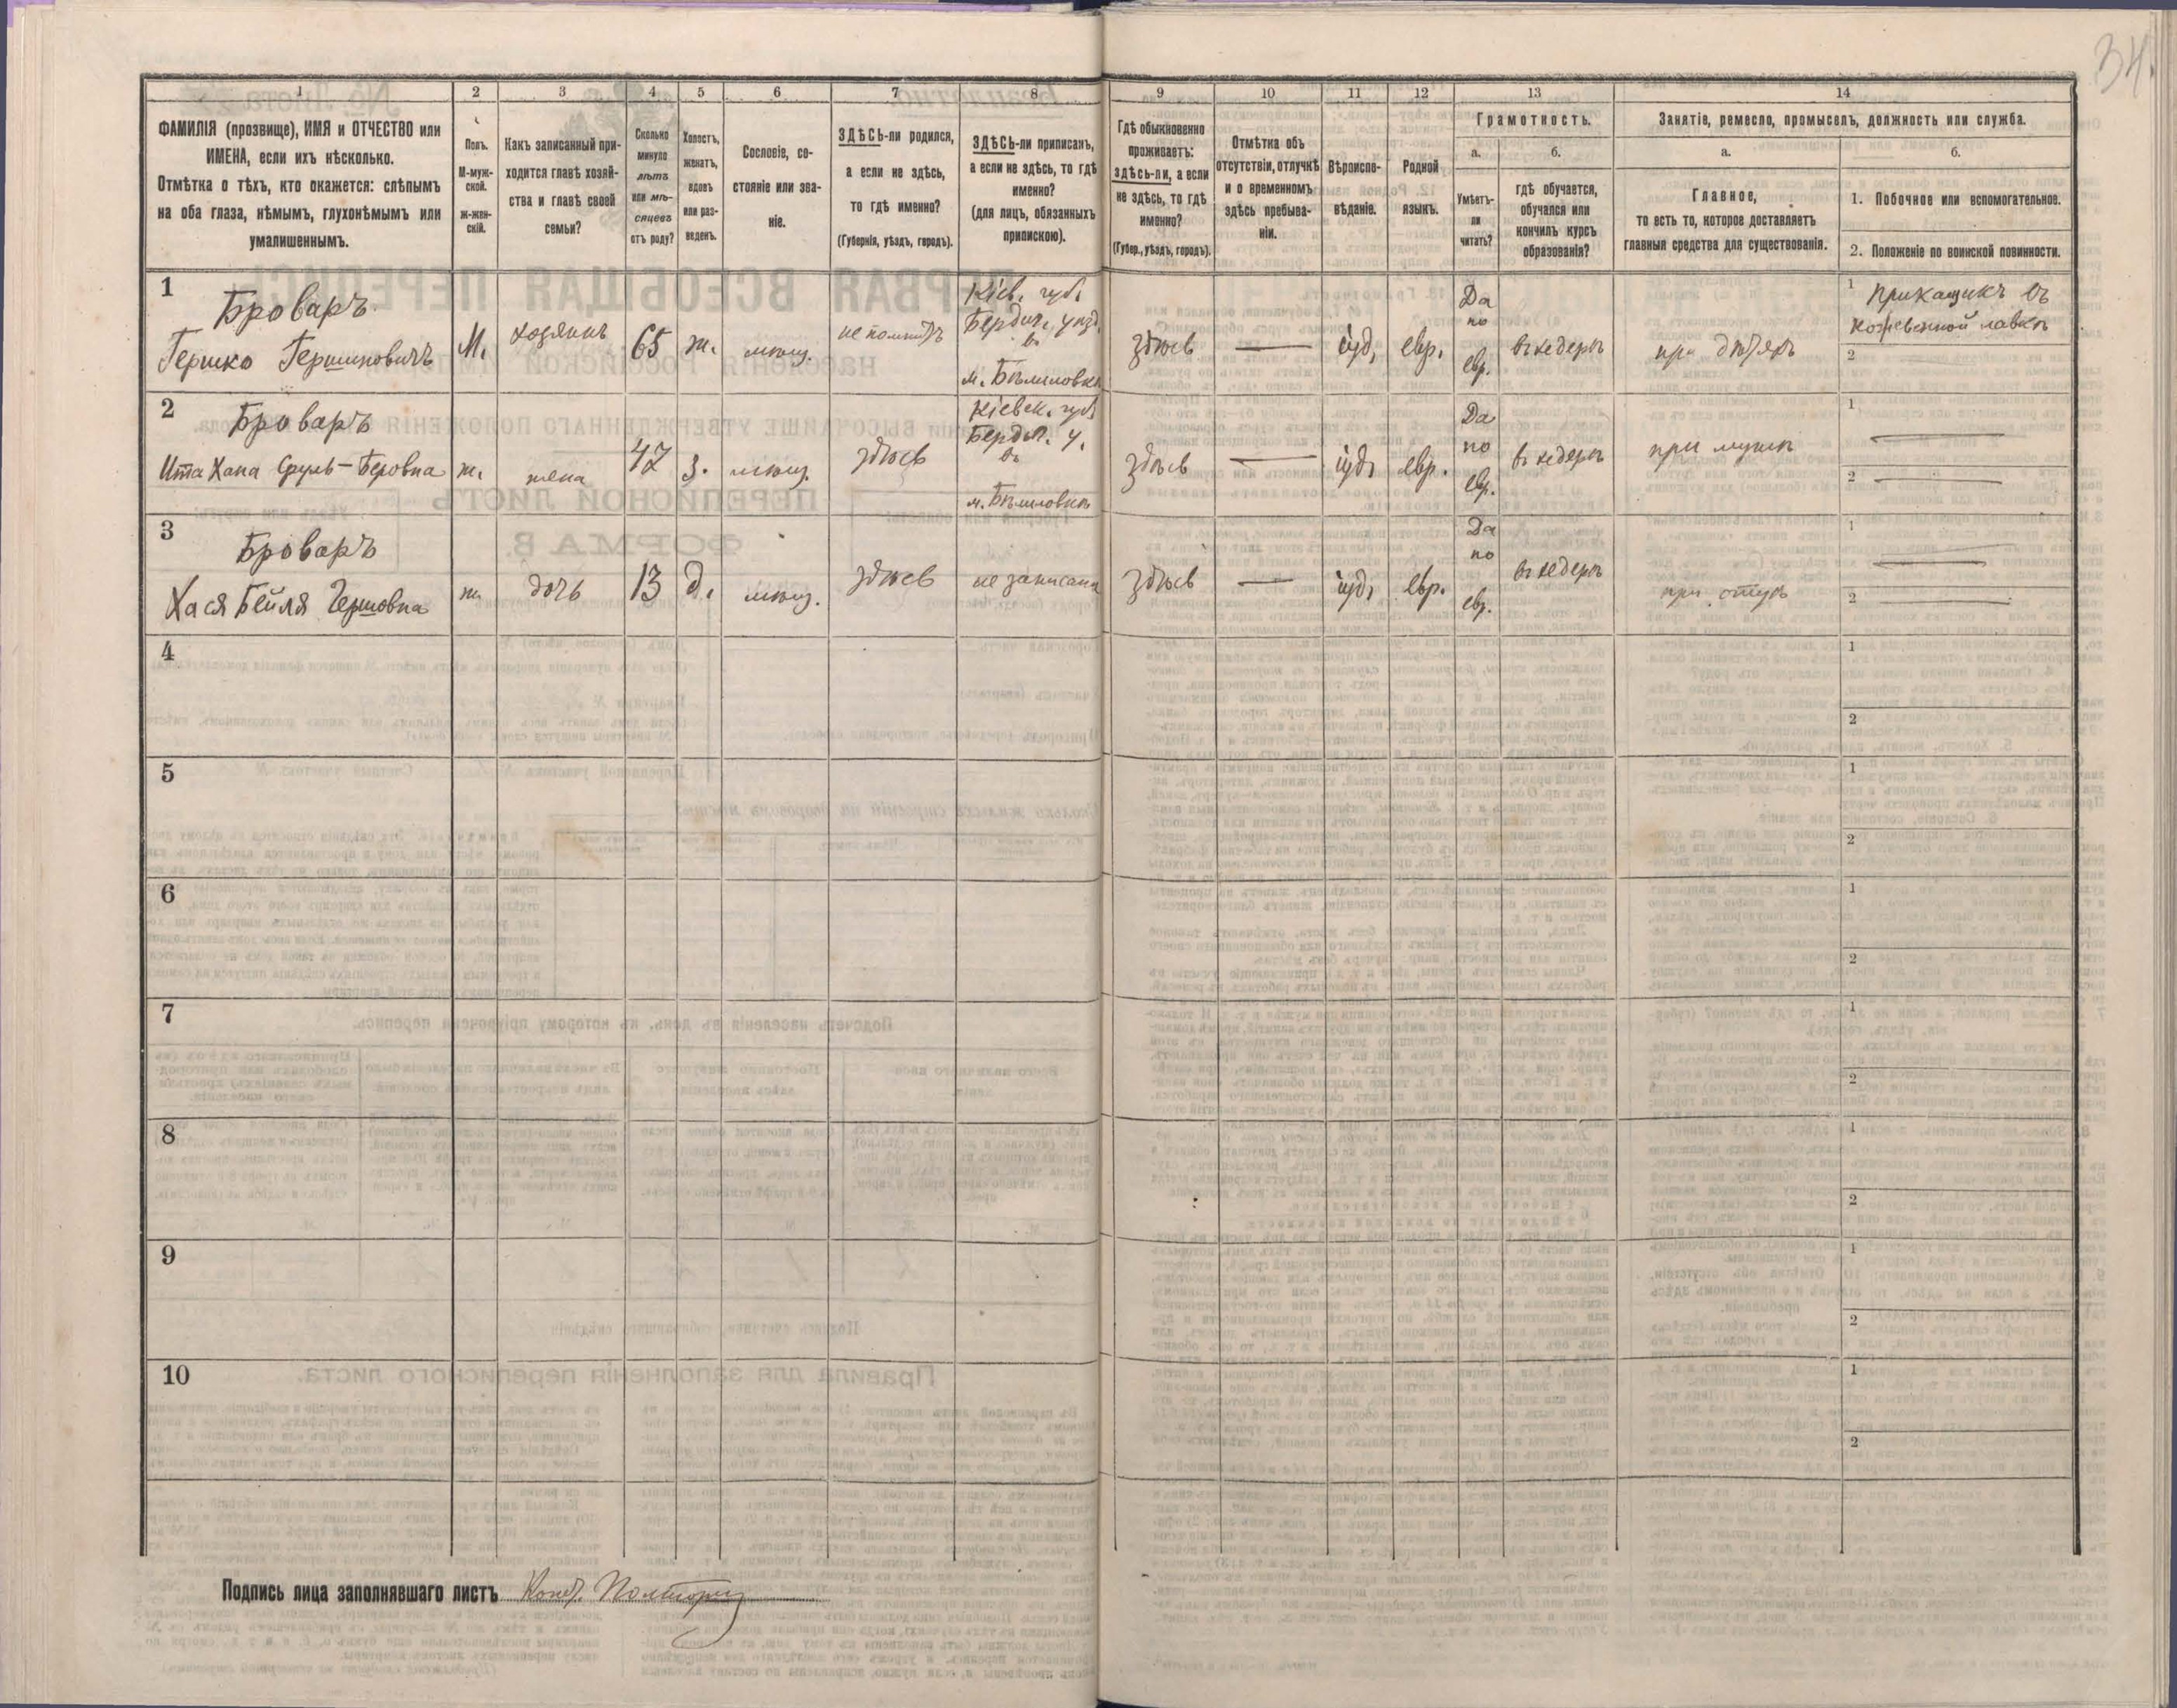 34.
1
2
3
4
5
6
7
8
9
10
11
12
13
14
ФАМИЛІЯ (прозвище), ИМЯ и ОТЧЕСТВО или
ИМЕНА, если ихъ нѣсколько.
Отмѣтка о тѣхъ, кто окажется: слѣпымъ
на оба глаза, нѣмымъ, глухонѣмымъ или
умалишеннымъ.
Полъ.
М-муж-
ской.
Ж-жен-
скій.
Какъ записанный при-
ходится главѣ хозяй-
ства и главѣ своей
семьи?
Сколько
минуло
лѣтъ
или мѣ-
сяцевъ
отъ роду?
Холостъ,
женатъ,
вдовъ
или раз-
веденъ.
Сословіе, со-
стояніе или зва-
ніе.
ЗДѢСЬ-ли родился,
а если не здѣсь,
то гдѣ именно?
(Губернія, уѣздъ, городъ).
ЗДѢСЬ-ли приписанъ,
а если не здѣсь, то гдѣ
именно?
(для лицъ, обязанныхъ
припискою).
Гдѣ обыкновенно
проживаетъ:
здѣсь-ли, а если
не здѣсь, то гдѣ
именно?
(Губер., уѣздъ, городъ).
Отмѣтка объ
отсутствіи, отлучкѣ
и о временномъ
здѣсь пребыва-
ніи.
Вѣроиспо-
вѣданіе.
Родной
языкъ.
Грамотность.
а.
Умѣетъ-
ли
читать?
б.
гдѣ обучается,
обучался или
кончилъ курсъ
образованія?
Занятіе, ремесло, промыселъ, должность или служба.
а.
Главное,
то есть то, которое доставляетъ
главныя средства для существованія.
б.
1. Побочное или вспомогательное.
2. Положеніе по воинской повинности.
1
Броваръ
Гершко Гершковичъ
М.
хозяинъ
65
ж.
мѣщ.
не помнитъ
Кіев. губ.
Бердич. уѣзд.
въ
м. Бѣлиловкѣ
здѣсь
—
іуд.
евр.
Да
по
евр.
въ хедерѣ
при дѣтяхъ
1
прикащикъ въ
кожевенной лавкѣ
2
—
2
Броваръ
Ита Хана Сруль-Беровна
ж.
жена
47
з.
мѣщ.
здѣсь
Кіевск. губ.
Бердич. у.
въ
м. Бѣлиловкѣ
здѣсь
—
іуд.
евр.
Да
по
евр.
въ хедерѣ
при мужѣ
1
—
2
—
3
Броваръ
Хася Бейля Гершовна
ж.
дочь
13
д.
мѣщ.
здѣсь
не записана
здѣсь
—
іуд.
евр.
Да
по
евр.
въ хедерѣ
при отцѣ
1
—
2
—
4
1
2
5
1
2
6
1
2
7
1
2
8
1
2
9
1
2
10
1
2
Подпись лица заполнявшаго листъ